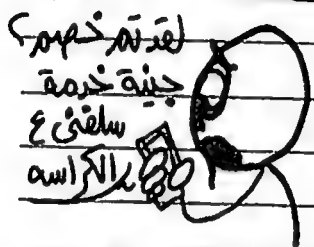 لقد تم خصم
جنية خدمة
سلفنى ع
الكراسه